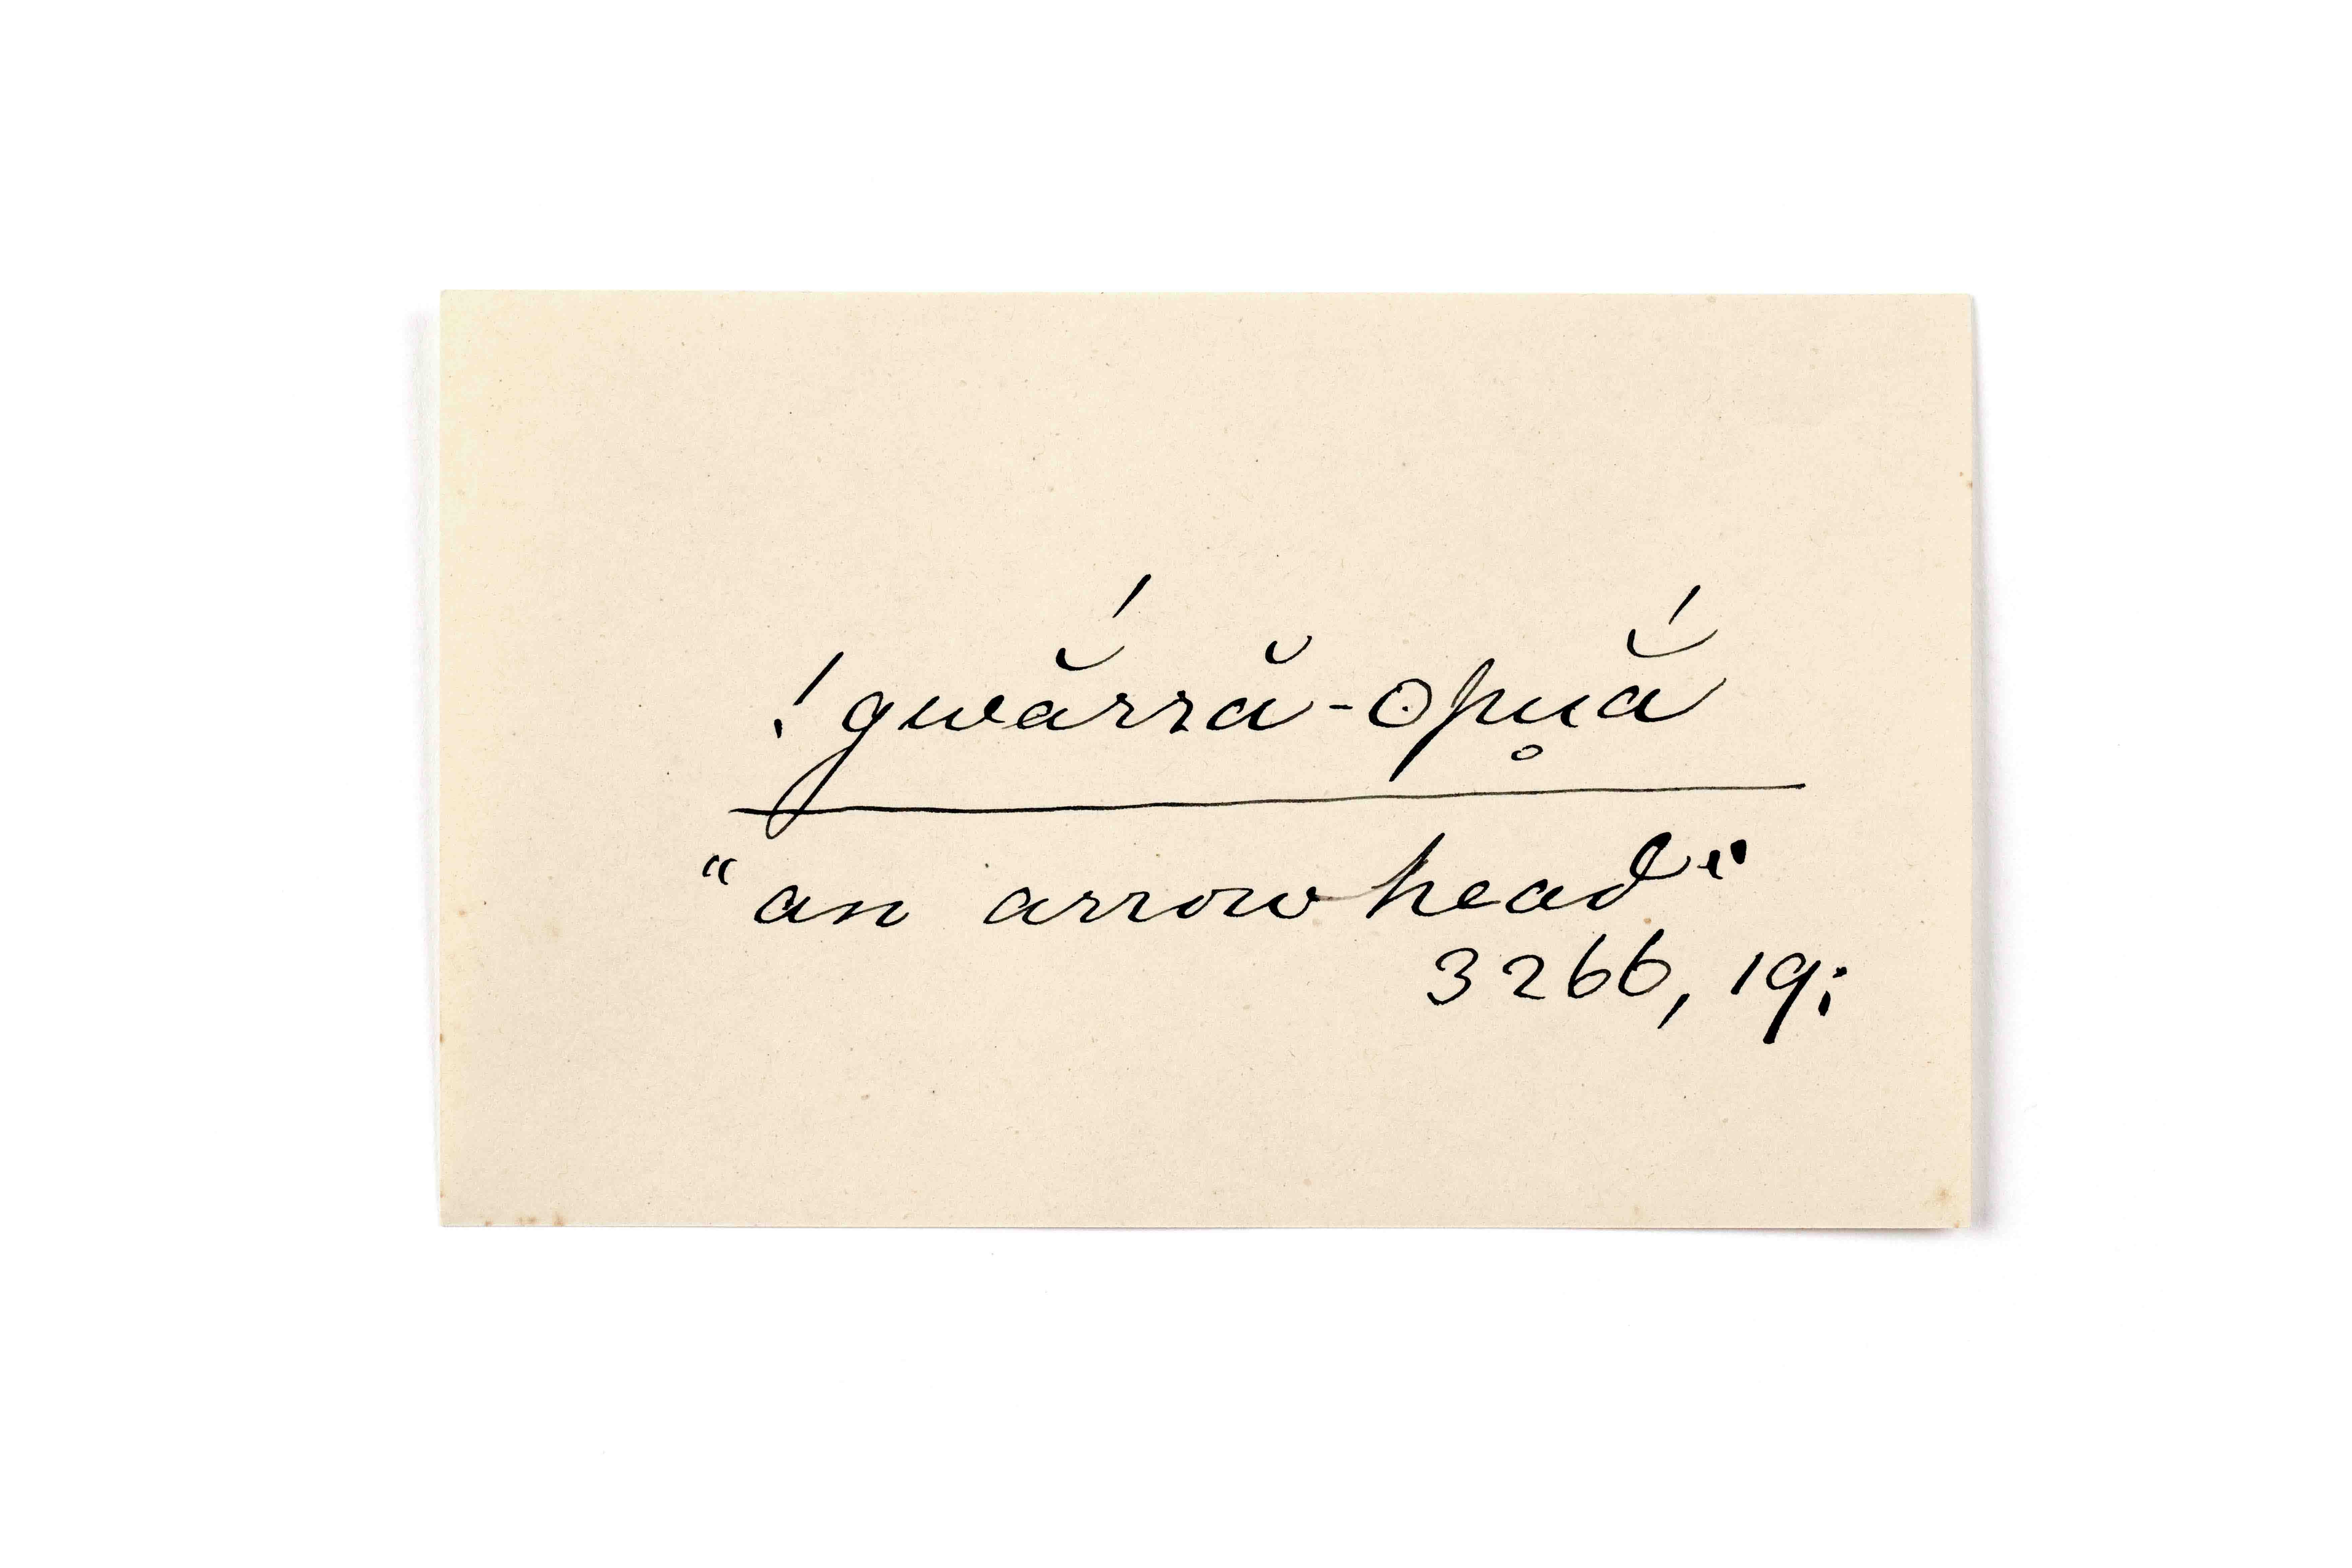 !gwắrră-ʘpu̥ắ
"an arrow head"
3266, 19;